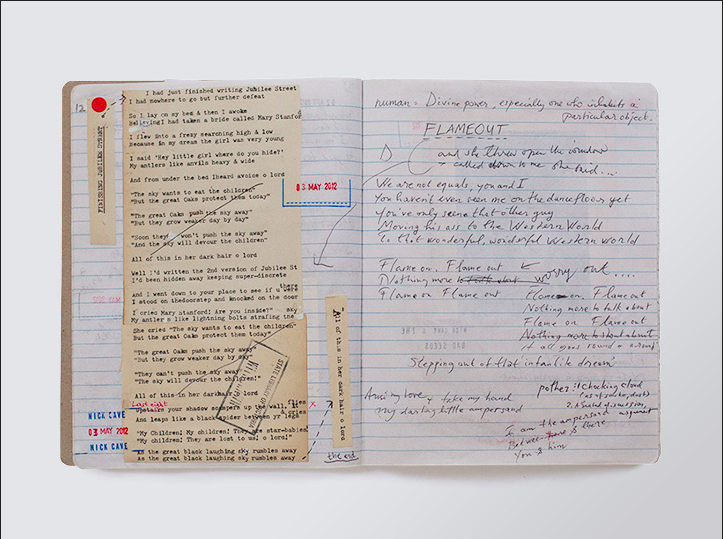 12
FINISHING JUBILEE STREET
I had just finished writing Jubilee Street
I had nowhere to go but further defeat
So I lay on my bed & then I awoke
Believing I had taken a bride called Mary Stanfor
I flew into a frezy searching high & low
Because in my dream the girl was very young
I said 'Hey little girl where do you hide?'
My antlers like anvils heavy & wide
And from under the bed Iheard avoice o lord
"The sky wants to eat the children"
"But the great Oaks protect them today"
"The great Oaks push the sky away"
"But they grow weaker day by day"
"Soon they won't push the sky away"
"And the sky will devour the children"
All of this in her dark hair o lord
Well I'd written the 2nd version of Jubilee St
I'd been hidden away keeping super-discrete
there
And I went down to your place to see if u were
I stood on thedoorstep and knocked on the door
I cried Mary Stanford! Are you inside?" sky
My antlers like lightning bolts strafing the
She cried "The sky wants to eat the children"
But the great Oaks protect them today"
"The great Oaks push the sky away"
"But they grow weaker day by day"
"They can't push the sky away"
"The sky will devour the children!"
All of this in her dark hair o lord
Last night
Upstairs your shadow scampers up the wall, it flies
Ans leaps like a black spider between yr legs & cries
"My Children! My children! They are star-babies
"My Children! They are lost to us! o lord!"
As the great black laughing sky rumbles away
As the great black laughing sky rumbles away
03 MAY 2012
NICK CAVE
03 MAY 2012
NICK CAVE
STATE LIBRARY OF
All of this in her dark hair o lord
x
the end
human = Divine power, especially one who inhabits a
particular object.
FLAMEOUT
D and she threw open the window
& called down to me she said....
We are not equals, you and I
You haven't even seen me on the dancefloor yet
You've only seen that other guy
Moving his ass to the Western World
To that wonderful, wonderful Western World
Flame on. Flame out
Nothing more to talk about worry out....
Flame on Flame out
Flame on. Flame out
Nothing more to talk about
Flame on Flame out
Nothing more to shout about
It all goes round & around
Stepping out of flat infantile dream
my love, take my hand
My darling little ampersand
pother: 1. Choking cloud
(as of smoke, dust)
2.
argument
I am the ampersand
Between here & there
You & him